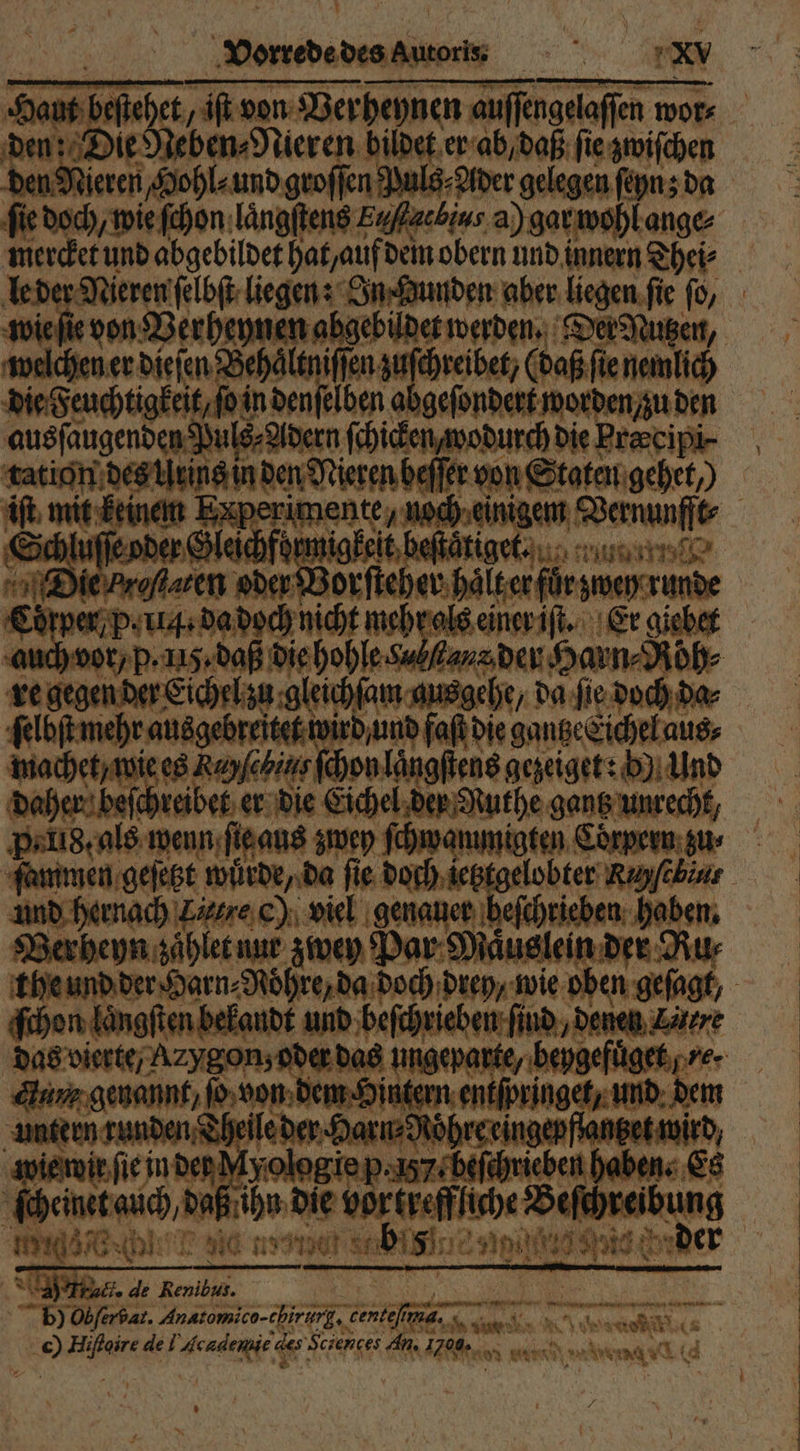 Vorrede des Autoris. XV
Haut bestehet, ist von Verheynen aussengelassen wor⸗
den: Die Neben⸗Nieren bildet er ab, daß sie zwischen
den Nieren, Hohl⸗ und grossen Puls⸗Ader gelegen seyn; da
sie doch, wie schon långstens Eustachius a) gar wohl ange⸗
mercket und abgebildet hat, auf dem obern und innern Thei⸗
le der Nieren selbst liegen: In Hunden aber liegen sie so,
wie sie von Verheynen abgebildet werden. Der Nutzen,
welchen er diesen Behåltnissen zuschreibet, (daß sie nemlich
die Feuchtigkeit, so in denselben abgesondert worden, zu den
aussaugenden Puls⸗Adern schicken, wodurch die Præcipi-
tation des Urins in den Nieren besser von Staten gehet,)
ist mit keinem Experimente, noch einigem Vernunfft⸗
Schlusse oder Gleichförmigkeit beståtiget.
Die Prostaten oder Vorsteher hålt er får zwey runde
Cörper, p. 114. da doch nicht mehr als einer ist. Er giebet
auch vor, p. 115. daß die hohle Substanz der Harn⸗Röh⸗
re gegen der Eichel zu gleichsam ausgehe, da sie doch da⸗
selbst mehr ausgebreitet wird, und fast die gantze Eichel aus⸗
machet, wie es Ruyschius schon långstens gezeiget: b) Und
daher beschreibet er die Eichel der Ruthe gantz unrecht,
p. 118. als wenn sie aus zwey schwammigten Cörpern zu⸗
sammen gesetzt wůrde, da sie doch ietztgelobter Ruyschius
und hernach Littre c) viel genauer beschrieben haben.
Verheyn zåhlet nur zwey Par Måuslein der Ru⸗
the und der Harn⸗Röhre, da doch drey, wie oben gesagt,
schon långsten bekandt und beschrieben sind, denen Littre
das vierte, Azygon, oder das ungeparte, beygefůget, re-
ctum genannt, so von dem Hintern entspringet, und dem
untern runden Theile der Harn⸗Röhre eingepflantzet wird,
wie wir sie in der Myologie p. 157. beschrieben haben. Es
scheinet auch, daß ihn die vortreffliche Beschreibung
b 5 der
a) Tract. de Renibus.
b) Observat. Anatomico-chirurg. centesima.
c) Histoire de l'Academie des Sciences An. 1700.